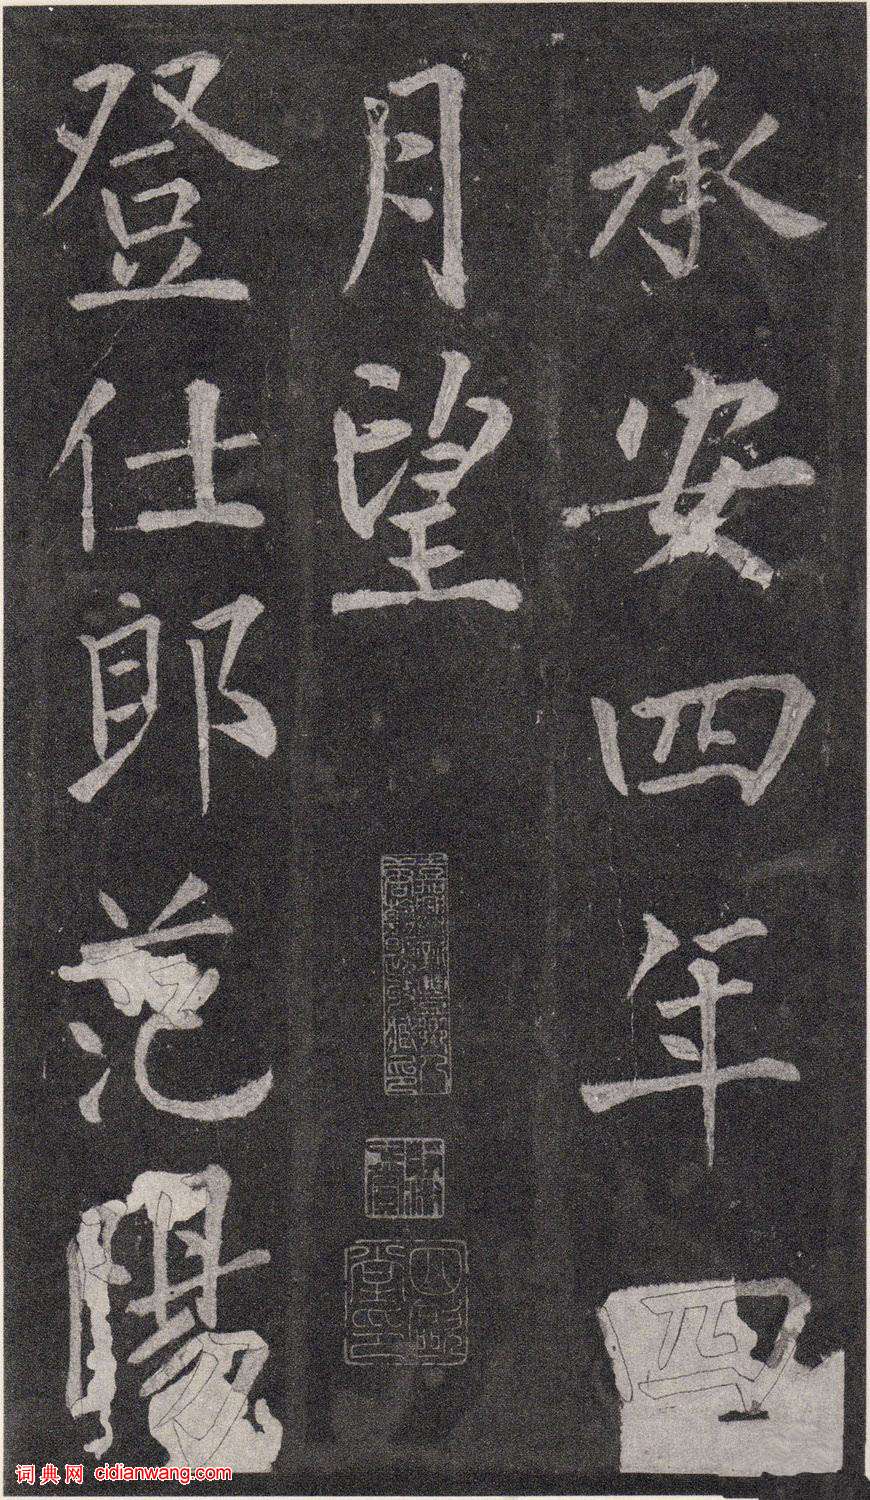 承安四年四
月望
登仕郎范陽
词典网 cidianwang.com